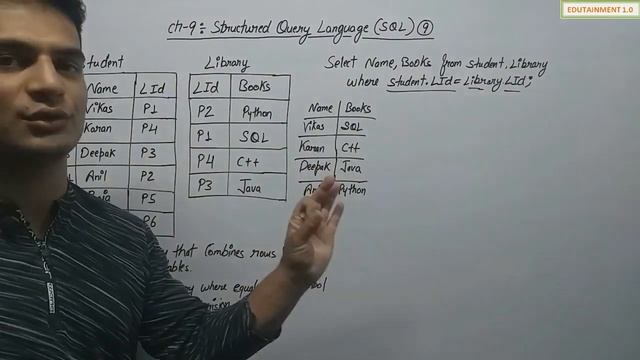 EDUTAINMENT 1.0
Ch-9: Structured Query Language (SQL) 9
Student
Name LId
Vikas P1
Karan P4
Deepak P3
Anil P2
P5
P6
Library
LId Books
P2 Python
P1 SQL
P4 C++
P3 Java
Select Name, Books from Student, Library
where Student.LId = Library.LId;
Name Books
Vikas SQL
Karan C++
Deepak Java
Python
that Combines rows
where